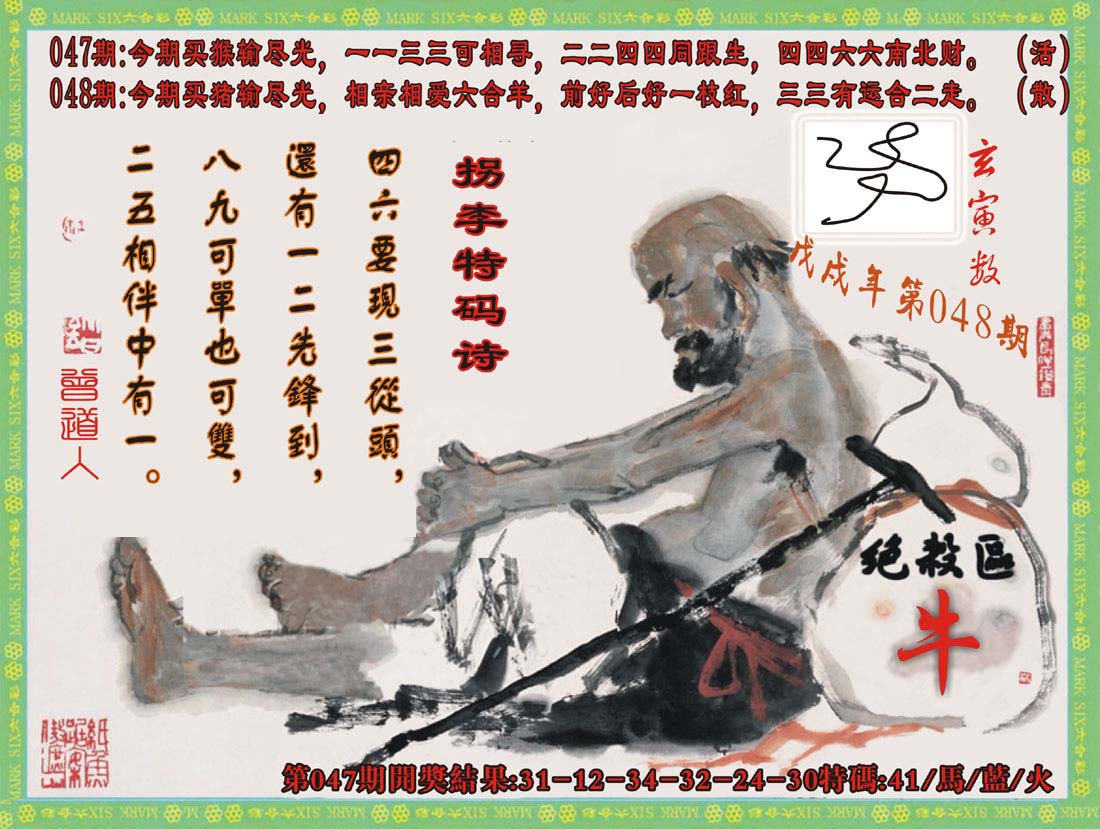 MARK SIX六合彩
047期:今期买猴输尽光，一一三三可相寻，二二四四局跟生，四四六六南北财。 (活)
048期:今期买猪输尽光，相亲相爱六合羊，前好后好一枝红，三三有运合二走。 (散)
玄寅数
戊戌年第048期
拐李特码诗
四六要現三從頭，
還有一二先鋒到，
八九可單也可雙，
二五相伴中有一。
曾道人
绝殺區
牛
第047期開獎結果:31-12-34-32-24-30特碼:41/馬/藍/火